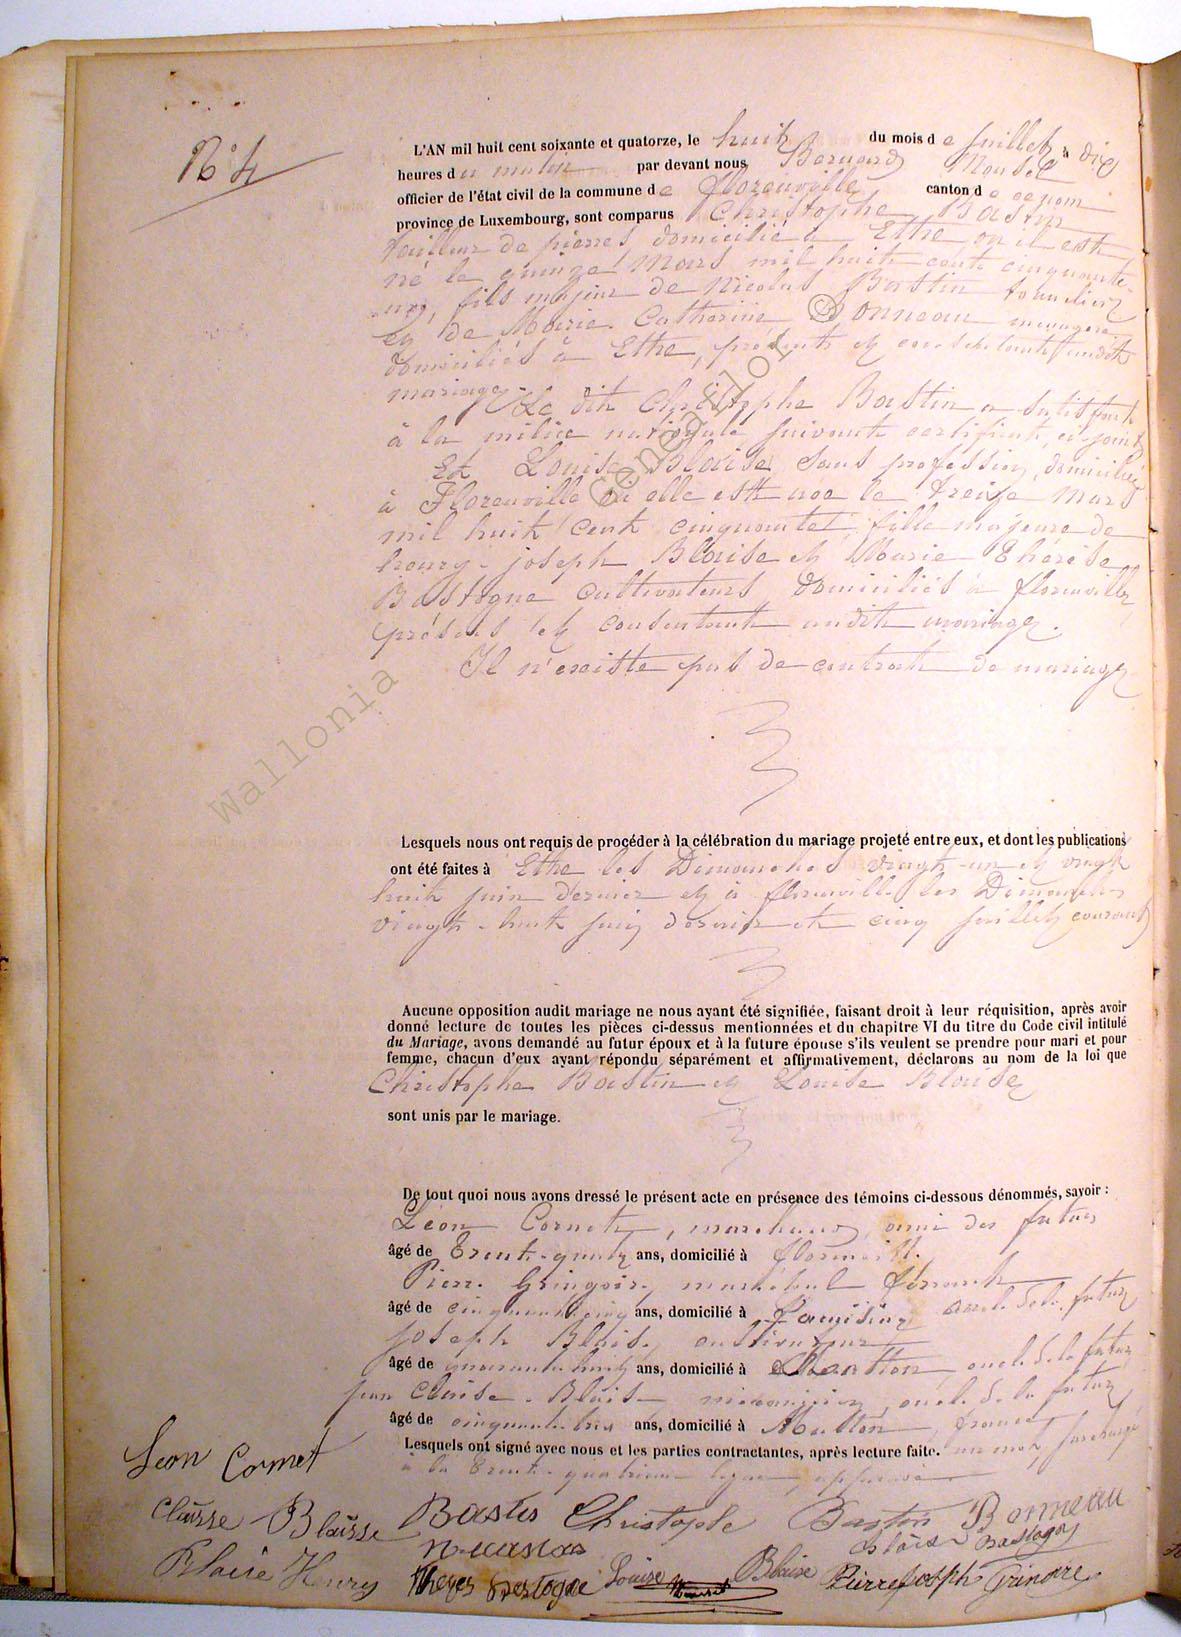 N° 4
L'AN mil huit cent soixante et quatorze, le huit du mois de Juillet à dix
heures du matin par devant nous Bernard Mousel
officier de l'état civil de la commune de Florenville canton de ce nom
province de Luxembourg, sont comparus Christophe Bastin
tailleur de pierres domicilié à Ethe où il est
né le quinze Mars mil huit cent cinquante
un, fils majeur de Nicolas Bastin tonnelier
et de Marie Catherine Bonneau ménagère
domiciliés à Ethe, présents et consentants audit
mariage. Le dit Christophe Bastin a satisfait
à la milice nationale suivant certificat ci-joint
Et Louise Blaise, sans profession, domiciliée
à Florenville où elle est née le treize Mars
mil huit cent cinquante, fille majeure de
henry-joseph Blaise et Marie Thérèse
Bastogne cultivateurs domiciliés à florenville
présens et consentant audit mariage.
Il n'existe pas de contrat de mariage
Lesquels nous ont requis de procéder à la célébration du mariage projeté entre eux, et dont les publications
ont été faites à Ethe les Dimanches vingt-un et vingt
huit juin dernier et à florenville les Dimanches
vingt-huit juin dernier et cinq juillet courant
Aucune opposition audit mariage ne nous ayant été signifiée, faisant droit à leur réquisition, après avoir
donné lecture de toutes les pièces ci-dessus mentionnées et du chapitre VI du titre du Code civil intitulé
du Mariage, avons demandé au futur époux et à la future épouse s'ils veulent se prendre pour mari et pour
femme, chacun d'eux ayant répondu séparément et affirmativement, déclarons au nom de la loi que
Christophe Bastin et Louise Blaise
sont unis par le mariage.
De tout quoi nous avons dressé le présent acte en présence des témoins ci-dessous dénommés, savoir :
Léon Cornet, marchand, ami des futurs
âgé de trente-quatre ans, domicilié à florenville.
Pierre Gringoire, maréchal ferrant
âgé de cinquante cinq ans, domicilié à oncle de la future
joseph Blaise, cultivateur
âgé de quarante huit ans, domicilié à oncle de la future
jean Claise-Blaise oncle de la future
âgé de cinquante trois ans, domicilié à france
Lesquels ont signé avec nous et les parties contractantes, après lecture faite. un mot surchargé
à la trente-quatrième ligne, approuvé
Leon Cornet
Blaisse Bastin Christophe Bastin Bonneau
Blaise Bastogne
Blaise Henry Bastogne Louise Blaise Pierre Joseph
Wallonia © Genea Flor